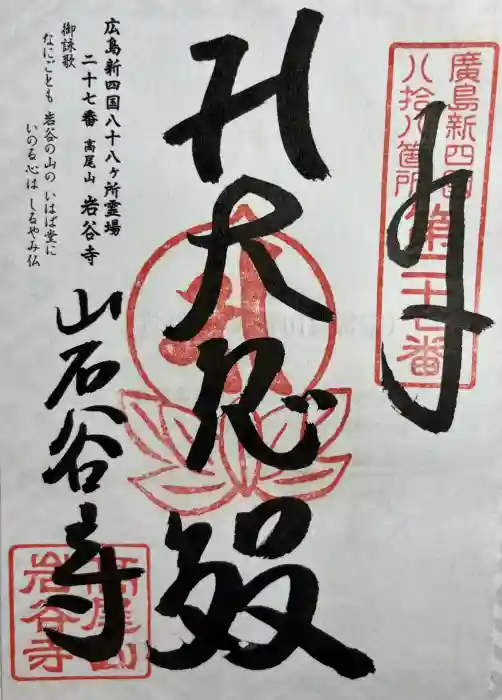 廣島新四国
八拾八箇所第二十七番
奉
大悲殿
広島新四国八十八ヶ所霊場
二十七番 高尾山 岩谷寺
御詠歌
なにごとも 岩谷の山の いはば堂に
いのる心は しるやみ仏
岩谷寺
高尾山
岩谷寺